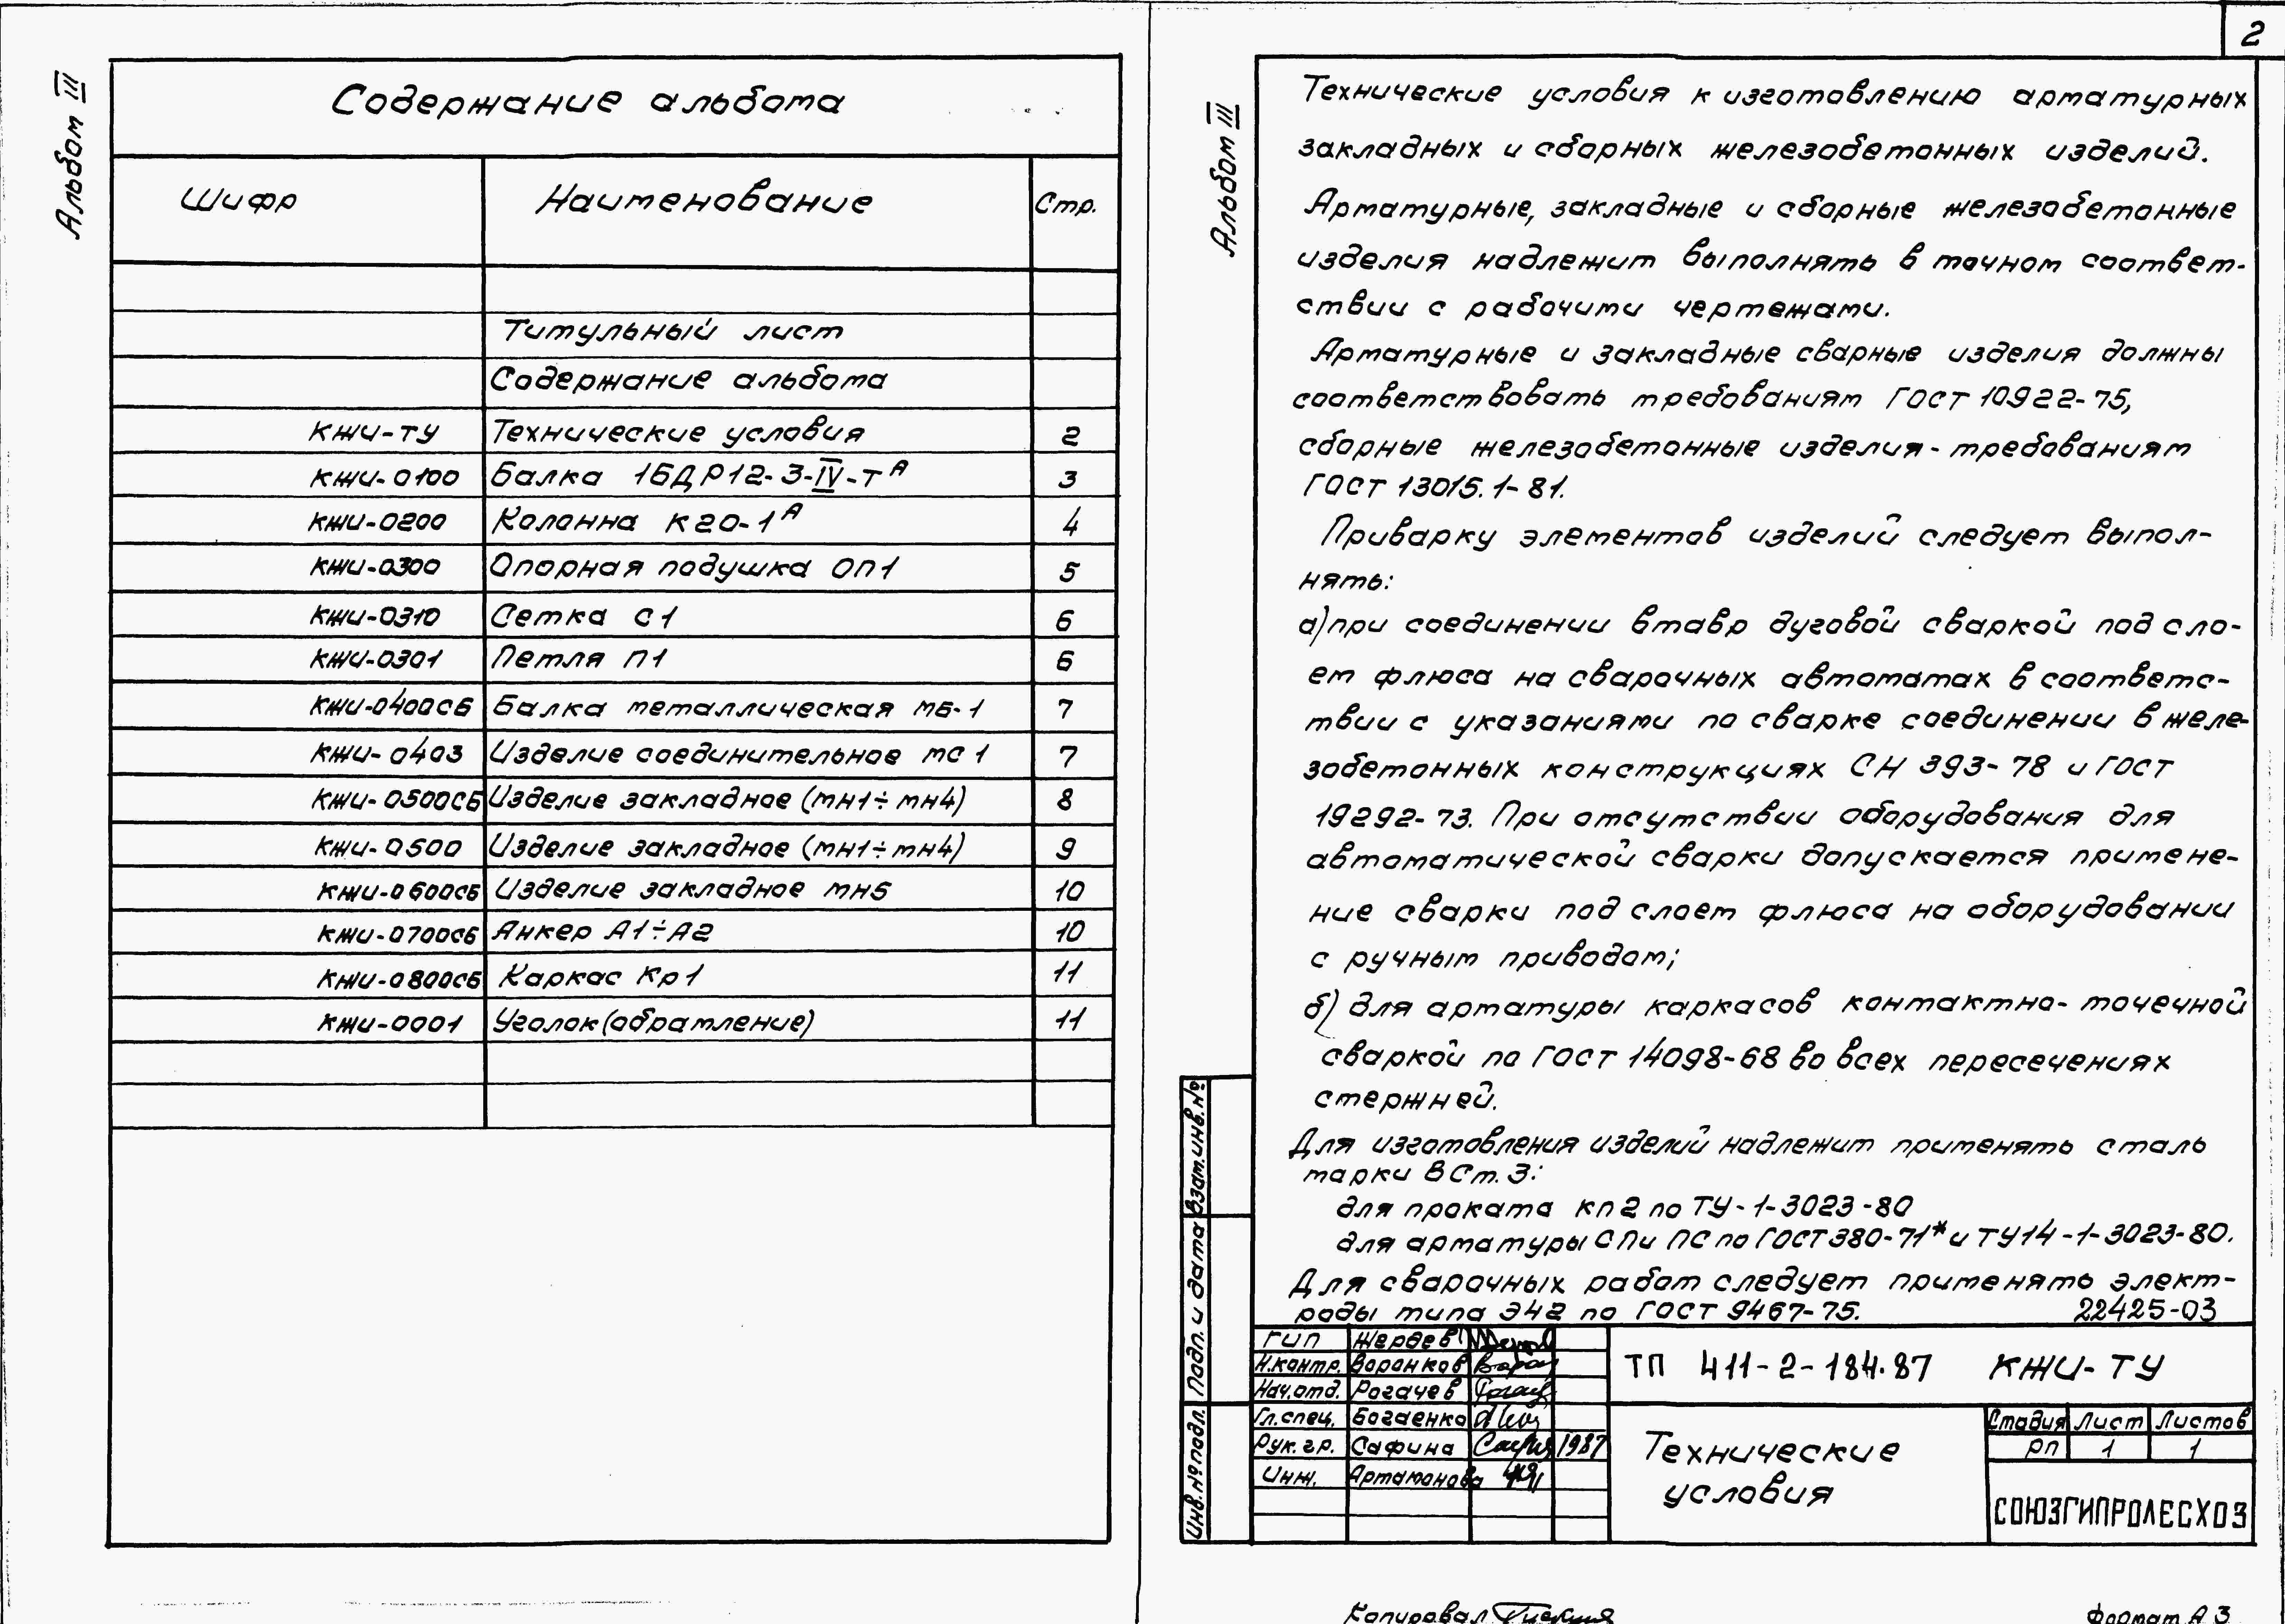 2
Альбом III
Содержание альбома
Шифр Наименование Стр.
Титульный лист
Содержание альбома
КЖИ-ТУ Технические условия 2
КЖИ-0100 Балка 1БДР12-3-IV-Т А 3
КЖИ-0200 Колонна К20-1 А 4
КЖИ-0300 Опорная подушка ОП1 5
КЖИ-0310 Сетка С1 6
КЖИ-0301 Петля П1 6
КЖИ-0400СБ Балка металлическая МБ-1 7
КЖИ-0403 Изделие соединительное МС1 7
КЖИ-0500СБ Изделие закладное (МН1÷МН4) 8
КЖИ-0500 Изделие закладное (МН1÷МН4) 9
КЖИ-0600СБ Изделие закладное МН5 10
КЖИ-0700СБ Анкер А1÷А2 10
КЖИ-0800СБ Каркас Кр1 11
КЖИ-0001 Уголок (обрамление) 11
Альбом III
Технические условия к изготовлению арматурных
закладных и сборных железобетонных изделий.
Арматурные, закладные и сборные железобетонные
изделия надлежит выполнять в точном соответ-
ствии с рабочими чертежами.
Арматурные и закладные сварные изделия должны
соответствовать требованиям ГОСТ 10922-75,
сборные железобетонные изделия - требованиям
ГОСТ 13015.1-81.
Приварку элементов изделий следует выпол-
нять:
а) при соединении втавр дуговой сваркой под сло-
ем флюса на сварочных автоматах в соответс-
твии с указаниями по сварке соединении в желе-
зобетонных конструкциях СН 393-78 и ГОСТ
19292-73. При отсутствии оборудования для
автоматической сварки допускается примене-
ние сварки под слоем флюса на оборудовании
с ручным приводом;
б) для арматуры каркасов контактно-точечной
сваркой по ГОСТ 14098-68 во всех пересечениях
стержней.
Для изготовления изделий надлежит применять сталь
марки ВСт.3:
для проката кп2 по ТУ-1-3023-80
для арматуры СП и ПС по ГОСТ 380-71* и ТУ14-1-3023-80.
Для сварочных работ следует применять элект-
роды типа Э42 по ГОСТ 9467-75. 22425-03
Взам.инв.№
Подп. и дата
Инв.№ подл.
ГИП Жердев
Н.контр. Воронков
Нач.отд. Рогачев
Гл.спец. Богаенко
Рук.гр. Сафина 1987
Инж. Артамонова
ТП 411-2-184.87 КЖИ-ТУ
Технические
условия
Стадия Лист Листов
РП 1 1
СОЮЗГИПРОЛЕСХОЗ
Копировал Формат А3